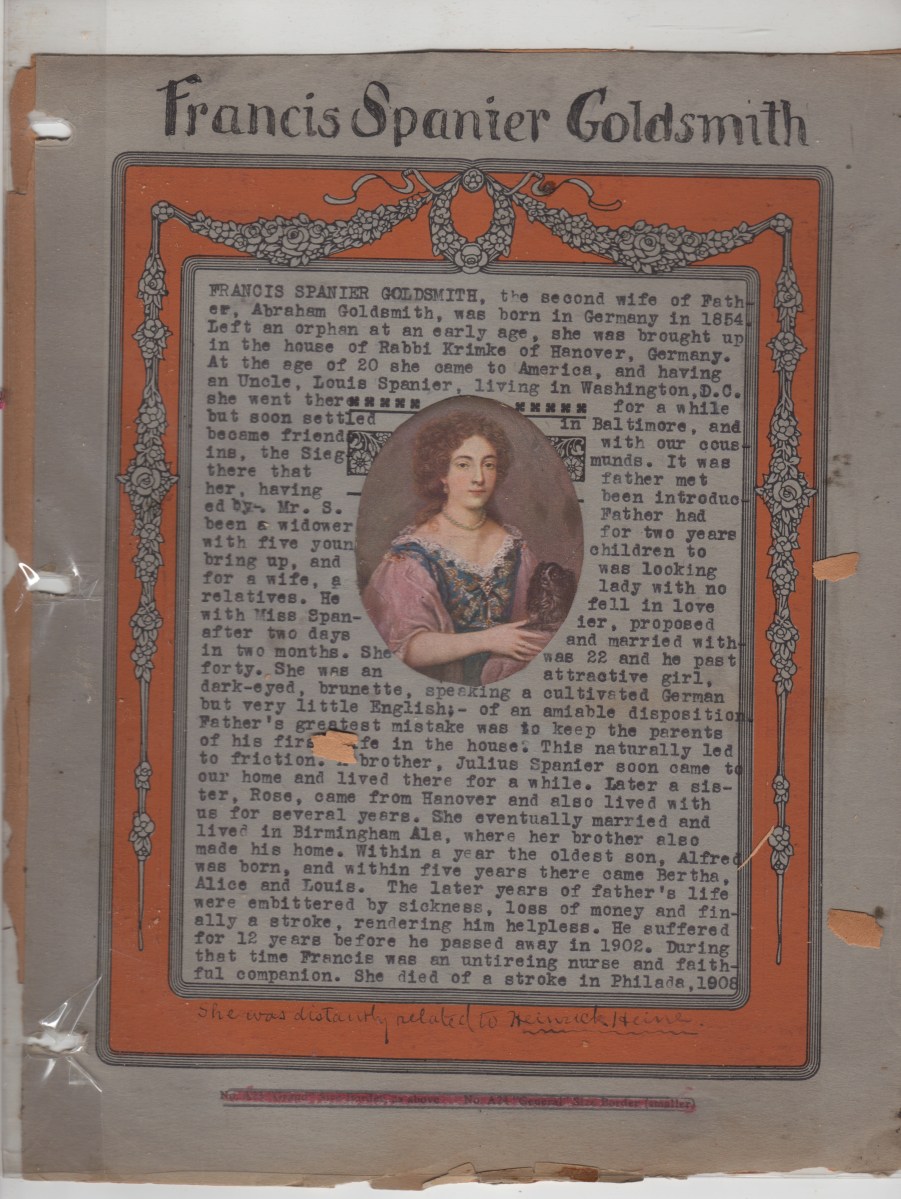 Francis Spanier Goldsmith
FRANCIS SPANIER GOLDSMITH, the second wife of Fath-
er, Abraham Goldsmith, was born in Germany in 1854.
Left an orphan at an early age, she was brought up
in the house of Rabbi Krimke of Hanover, Germany.
At the age of 20 she came to America, and having
an Uncle, Louis Spanier, living in Washington,D.C.
she went there for a while
but soon settled in Baltimore, and
became friend with our cous-
ins, the Sieg- munds. It was
there that father met
her, having been introduc-
ed by-. Mr. S. Father had
been a widower for two years
with five youn children to
bring up, and was looking
for a wife, a lady with no
relatives. He fell in love
with Miss Span- ier, proposed
after two days and married with-
in two months. She was 22 and he past
forty. She was an attractive girl,
dark-eyed, brunette, speaking a cultivated German
but very little English;- of an amiable disposition.
Father's greatest mistake was to keep the parents
of his fir fe in the house. This naturally led
to friction. brother, Julius Spanier soon came to
our home and lived there for a while. Later a sis-
ter, Rose, came from Hanover and also lived with
us for several years. She eventually married and
lived in Birmingham Ala, where her brother also
made his home. Within a year the oldest son, Alfred
was born, and within five years there came Bertha,
Alice and Louis. The later years of father's life
were embittered by sickness, loss of money and fin-
ally a stroke, rendering him helpless. He suffered
for 12 years before he passed away in 1902. During
that time Francis was an untireing nurse and faith-
ful companion. She died of a stroke in Philada,1908
She was distantly related to Heinrick Heine.
Size Border, as above. No. A24 "General" Size Border (smaller)